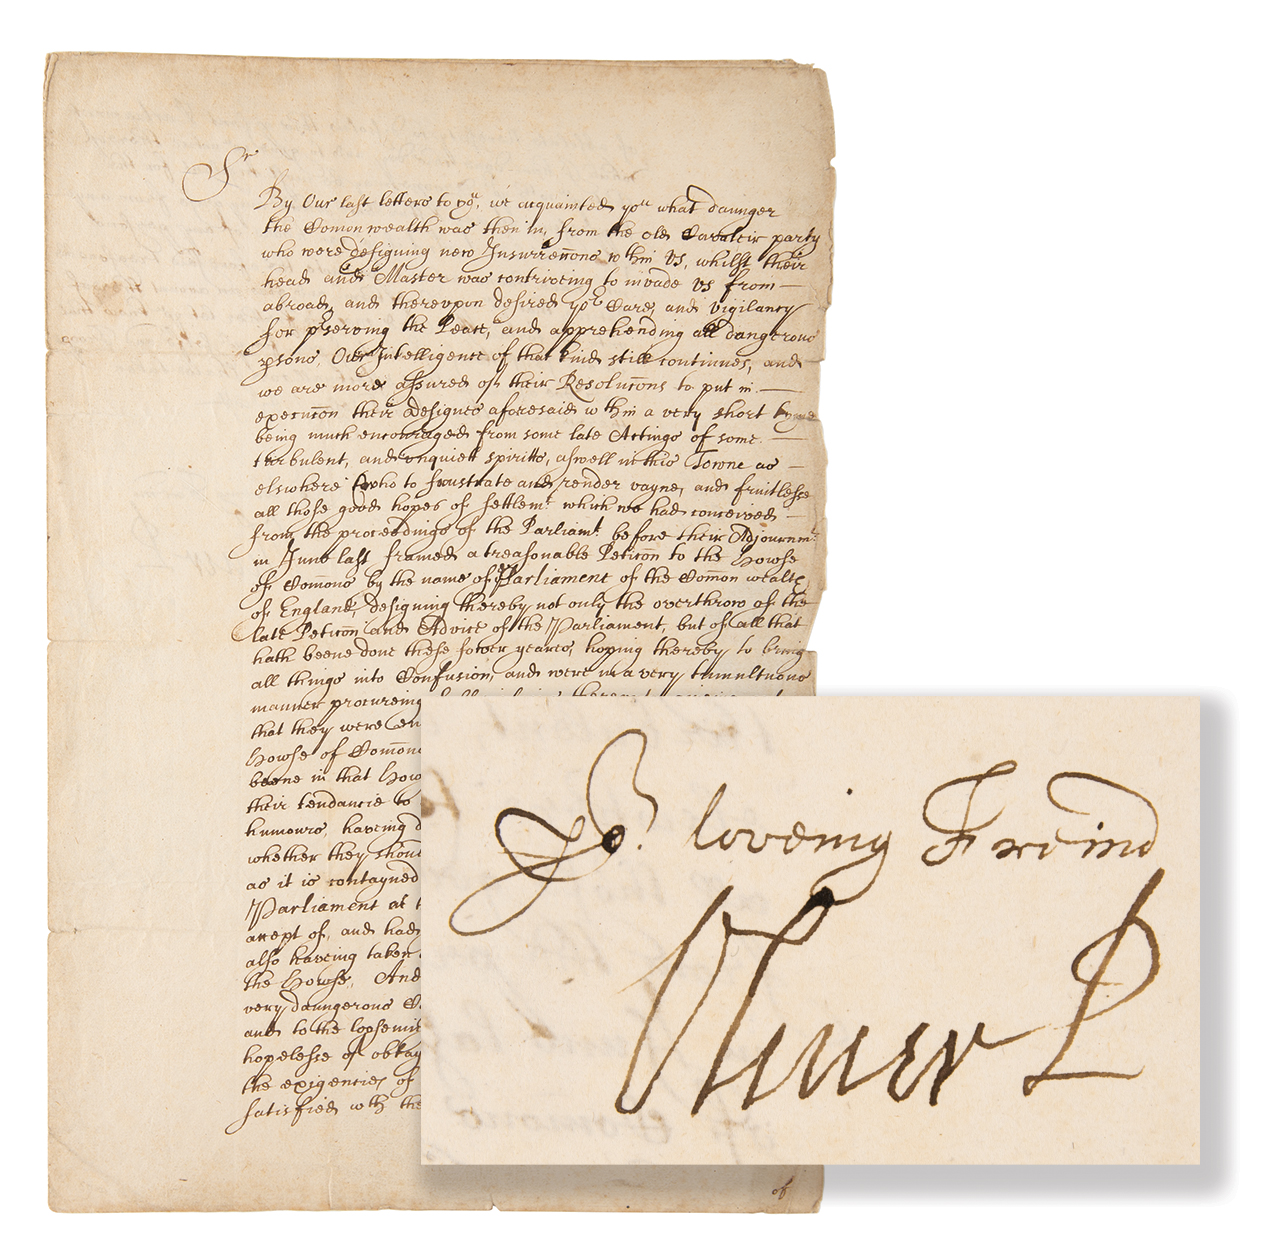 Sr
By Our last letters to you, we acquainted you what daunger
the Comonwealth was then in, from the old Cavaleir party
who were designing new Insurrecons wthin us, whilst their
head and Master was contriveing to invade us from
abroad, and thereupon desired yor Care, and vigilancy
for pserving the Peace, and apprehending all dangerous
psons. Our Intelligence of that kind still continues, and
we are more assured of their Resolucons to put in
execucon their designes aforesaid wthin a very short tyme
being much encouraged from some late Actings of some
turbulent, and unquiett spiritts, aswell in this Towne as
elswhere who to frustrate and render vayne, and fruitlesse
all those good hopes of settlemt which we had conceived
from the proceedings of the Parliamt before their Adjournmt
in June last framed a treasonable Peticon to the Howse
of Comons by the name of Parliament of the Comon wealth
of England, designing thereby not only the overthrow of the
late Peticon and Advice of the Parliament, but of all that
hath beene done these seven yeares, hoping thereby to bring
all things into Confusion, and were in a very tumultuous
manner procureing
that they were
Howse of Comons
beene in that Howse
their tendancie to
humours, haveing
whether they should
as it is contayned
Parliament at
accept of, and had
also haveing taken
the Howse, And
very daungerous
and to the
hopelesse of
the exigencies of
satisfied wth the
of
Yor loveing Freind
Oliver P